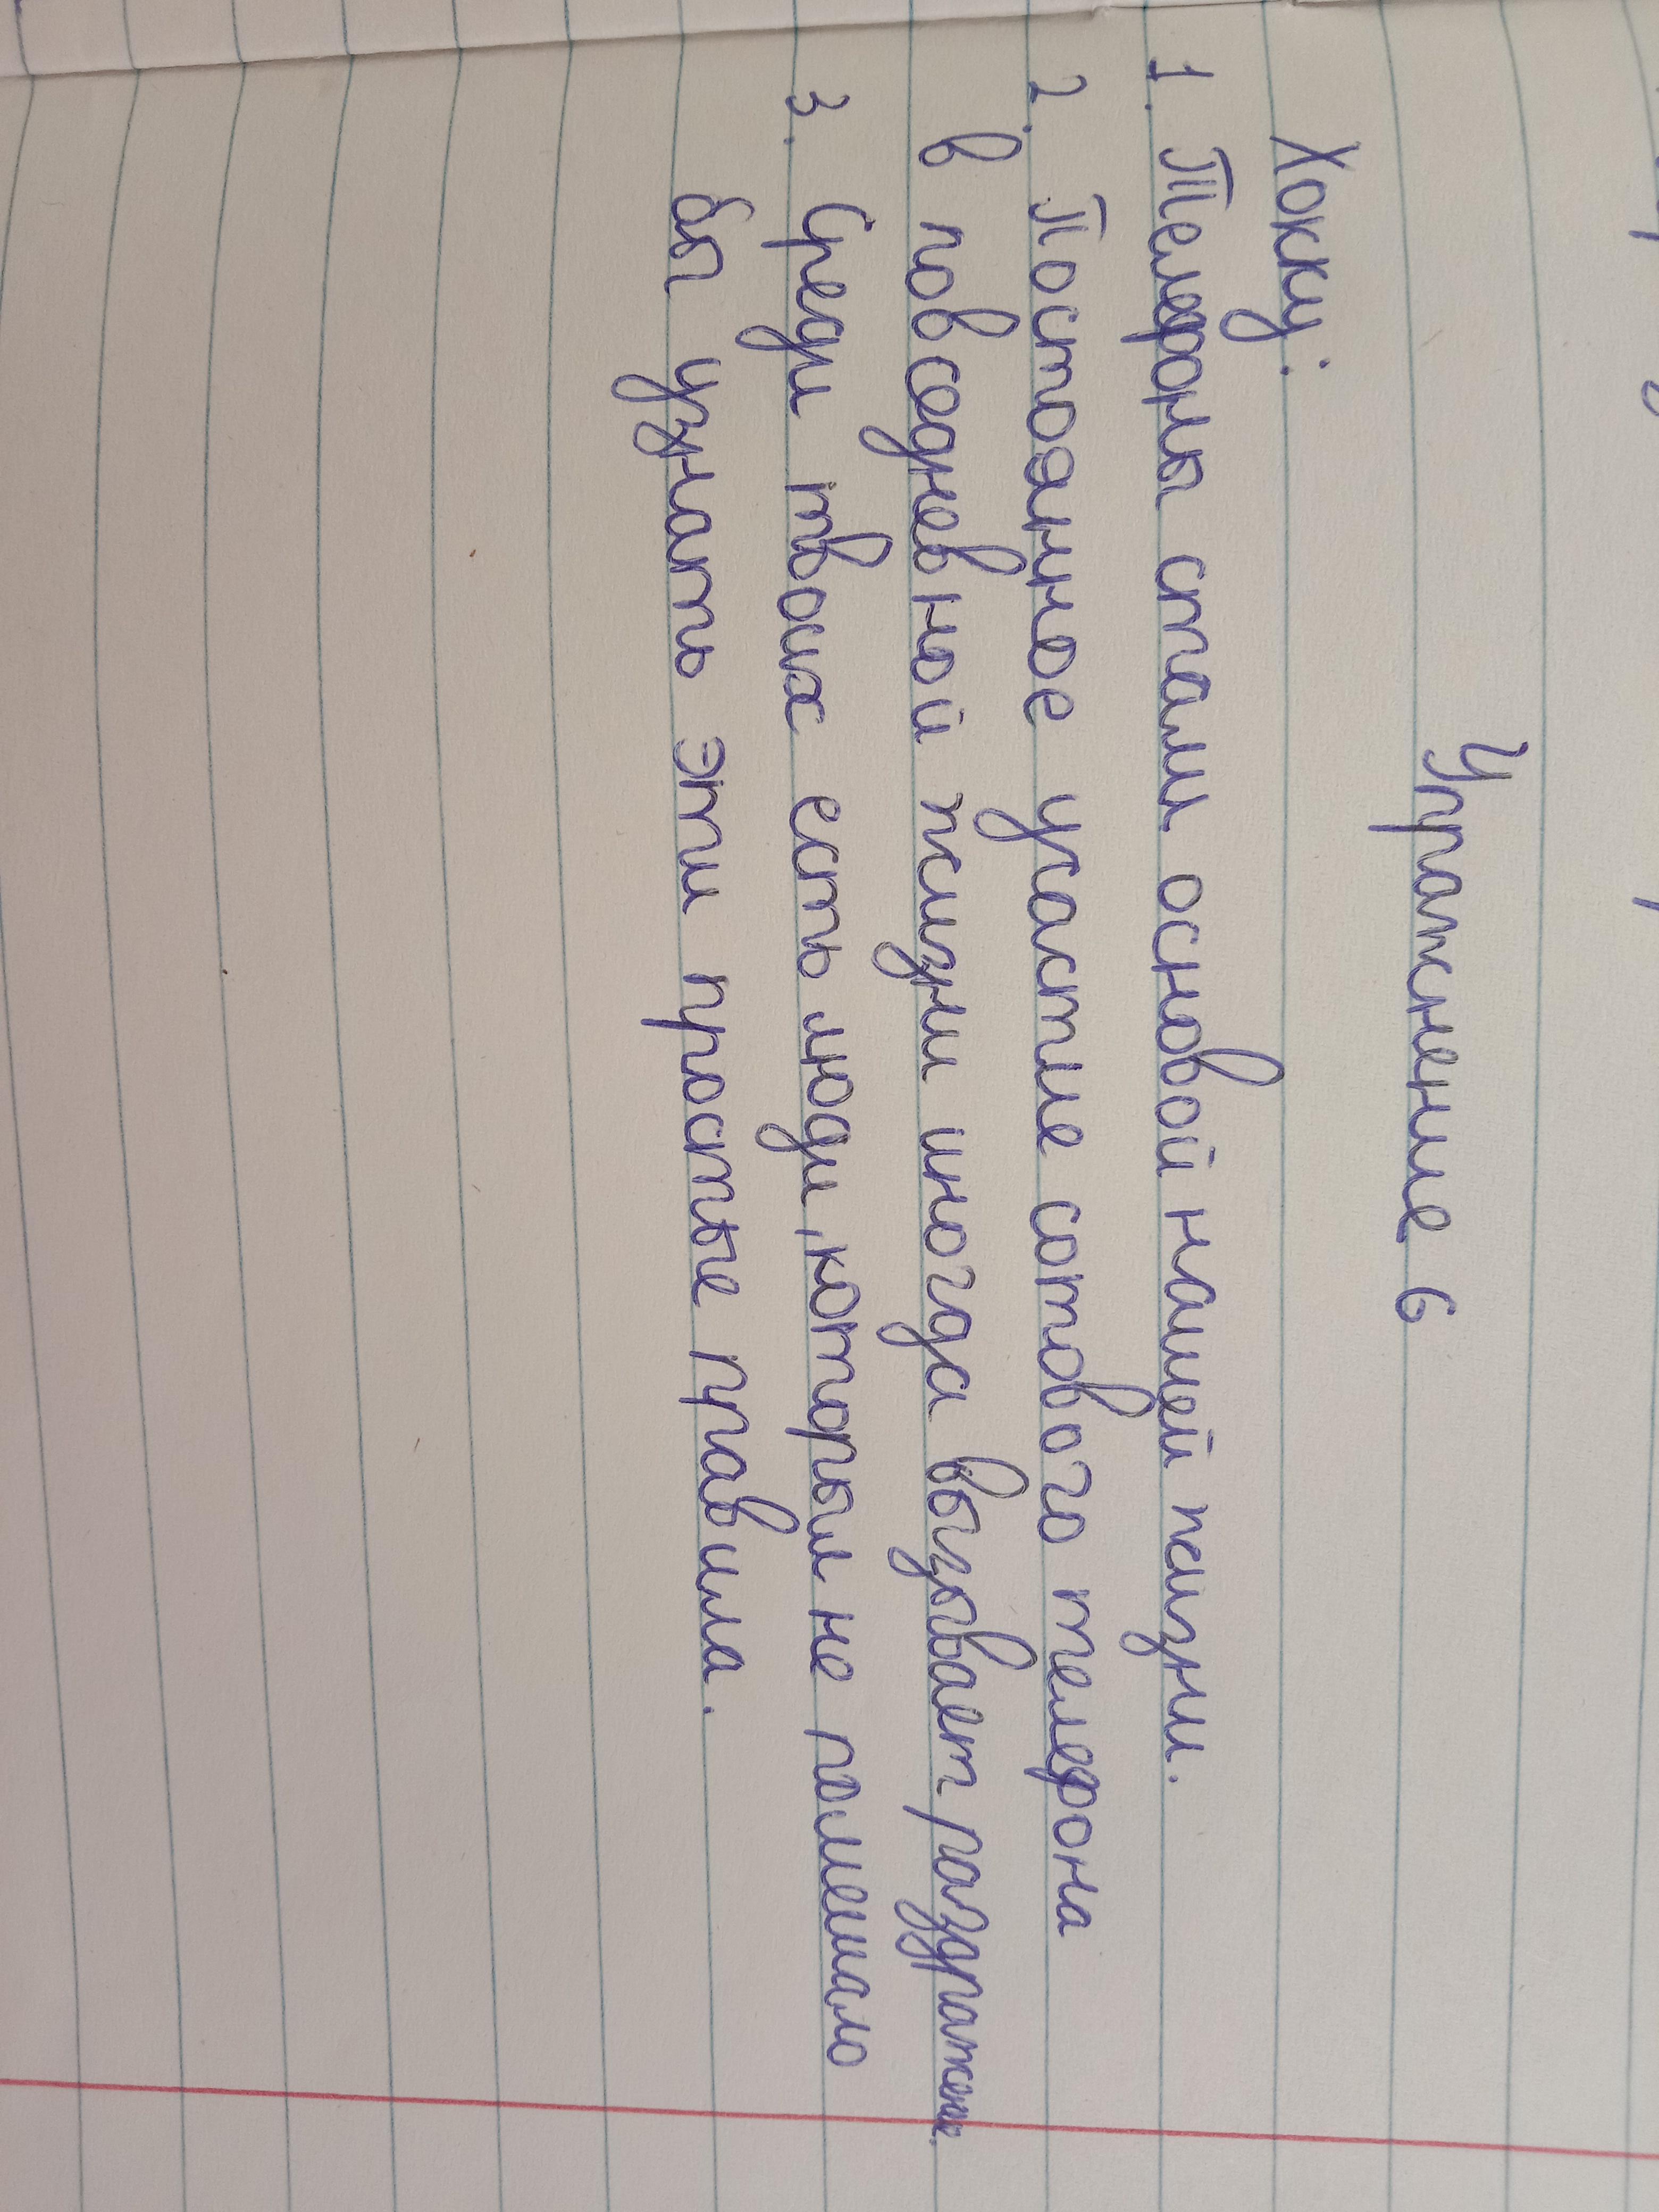 Упражнение 6
Хокку:
1. Телефоны стали основой нашей жизни.
2. Постоянное участие сотового телефона
в повседневной жизни иногда вызывает раздражение.
3. Среди твоих есть люди, которым не помешало
бы узнать эти простые правила.